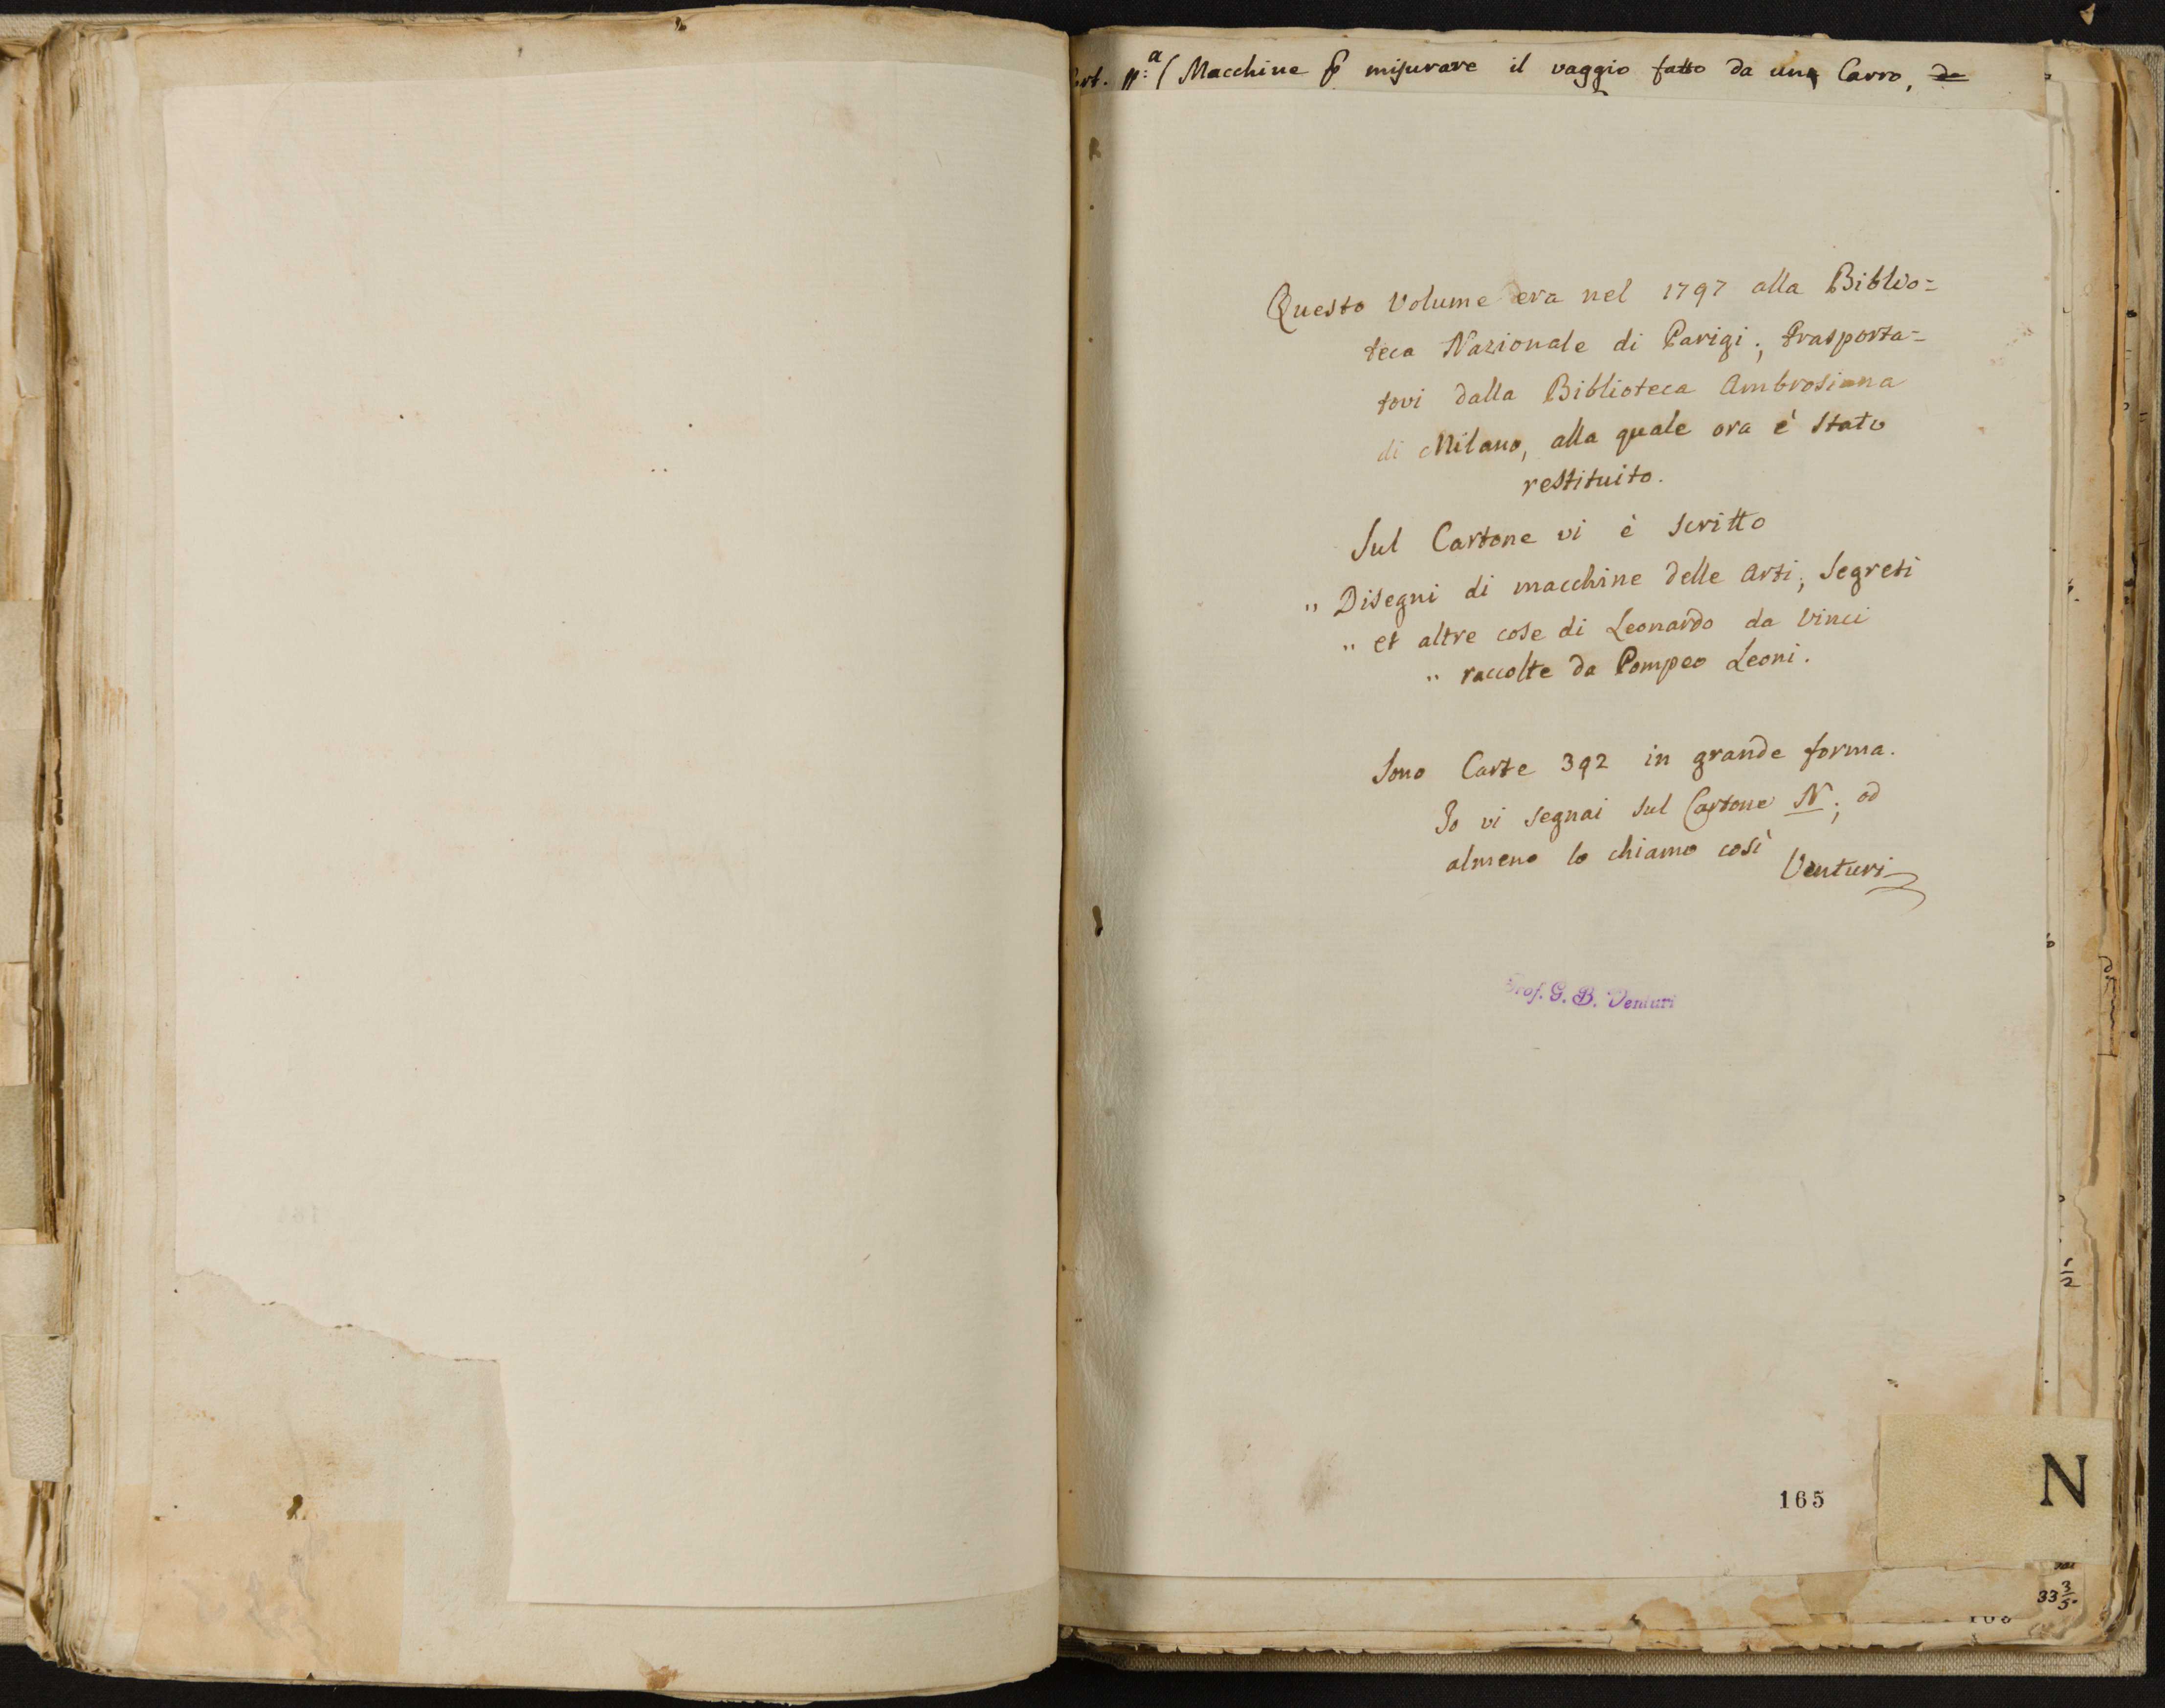 Cart. p.ª ( Macchine p misurare il vaggio fatto da una Carro, da
Questo Volume era nel 1797 alla Biblio=
teca Nazionale di Parigi; trasporta=
tovi dalla Biblioteca Ambrosiana
di Milano, alla quale ora è stato
restituito.
Sul Cartone vi è scritto
" Disegni di macchine delle Arti, Segreti
" et altre cose di Leonardo da Vinci
" raccolte da Pompeo Leoni.
Sono Carte 392 in grande forma.
Io vi segnai sul Cartone N; od
almeno lo chiamo così
Venturi
Prof. G. B. Venturi
165
N
33 3/5